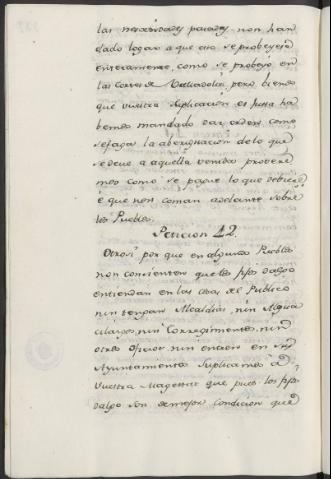 las necesidades pasadas non han
dado logar a que esto se probeyese
enteramente, como se probeyó en
las Cortes de Valladolid, pero biendo
que vuestra Suplicacion es justa ha
bemos mandado dar orden como
se faga la aberiguacion de lo que
se deve a aquella venida provere
mos como se pague lo que debiere
é que non coman adelante sobre
los Pueblos.
Peticion 42.
Otrosi por que en algunos Pueblos
non consienten que los fijos dalgo
entiendan en las cosas del Publico
nin tengan Alcaldias, nin Algua
cilazgos, nin Corregimientos, nin
otros oficios nin entren en sus
Ayuntamientos Suplicamos á
Vuestra Magestad que pues los fijos
dalgo son de mejor condicion que